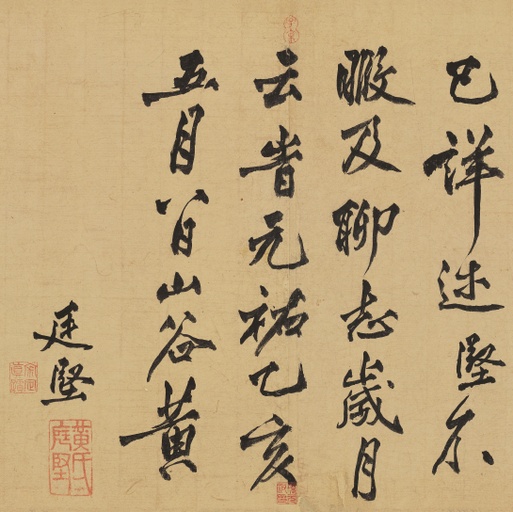 已詳述堅不
暇及聊志歲月
云峕元祐乙亥
五月八日山谷黃
庭堅
黃氏庭堅